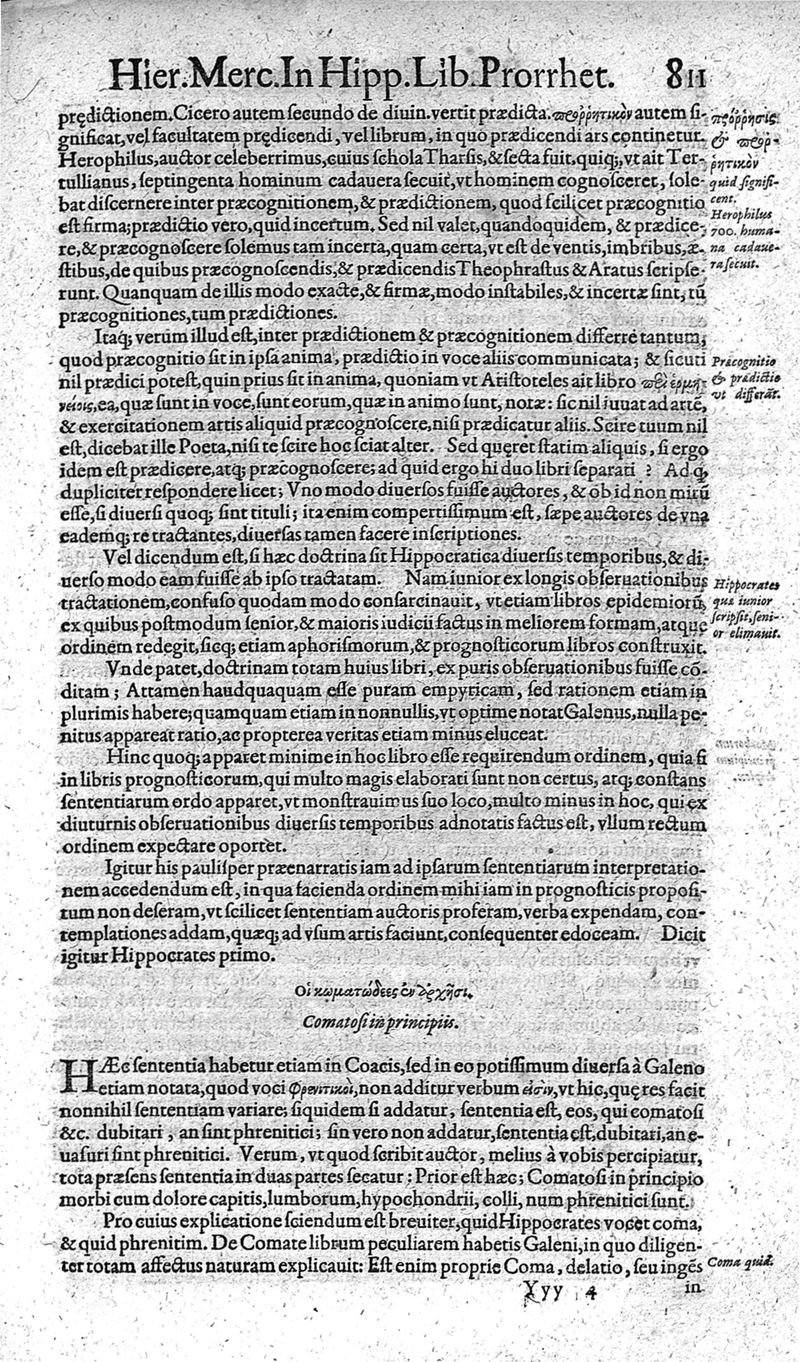 Hier. Merc. In Hipp. Lib. Prorrhet. 811
prędictionem. Cicero autem secundo de diuin. vertit prædicta. προῤῥητικὸν autem si-
gnificat, vel facultatem prędicendi, vel librum, in quo prædicendi ars continetur.
Herophilus, auctor celeberrimus, cuius schola Tharsis, & secta fuit, quiq;, vt ait Ter-
tullianus, septingenta hominum cadauera secuit, vt hominem cognosceret, sole-
bat discernere inter præcognitionem, & prædictionem, quod scilicet præcognitio
est firma; prædictio vero, quid incertum. Sed nil valet, quandoquidem, & prædice-
re, & præcognoscere solemus tam incerta, quam certa, vt est de ventis, imbribus, æ-
stibus, de quibus præcognoscendis, & prædicendis Theophrastus & Aratus scripse-
runt. Quanquam de illis modo exacte, & firmæ, modo instabiles, & incertæ sint, tũ
præcognitiones, tum prædictiones.
πρόῤῥησις
& προῤ-
ῥητικὸν
quid signifi-
cent.
Herophilus
700. huma-
na cadaue-
ra secuit.
Itaq; verum illud est, inter prædictionem & præcognitionem differre tantum,
quod præcognitio sit in ipsa anima, prædictio in voce aliis communicata; & sicuti
nil prædici potest, quin prius sit in anima, quoniam vt Aristoteles ait libro περὶ ἑρμη-
νείας, ea, quæ sunt in voce, sunt eorum, quæ in animo sunt, notæ: sic nil iuuat ad artẽ,
& exercitationem artis aliquid præcognoscere, nisi prædicatur aliis. Scire tuum nil
est, dicebat ille Poeta, nisi te scire hoc sciat alter. Sed quęret statim aliquis, si ergo
idem est prædicere, atq; præcognoscere; ad quid ergo hi duo libri separati? Ad q̃
dupliciter respondere licet; Vno modo diuersos fuisse auctores, & ob id non mirũ
esse, si diuersi quoq; sint tituli; ita enim compertissimum est, sæpe auctores de vna
eademq; re tractantes, diuersas tamen facere inscriptiones.
Præcognitio
& prædictio
vt differãt.
Vel dicendum est, si hæc doctrina sit Hippocratica diuersis temporibus, & di-
uerso modo eam fuisse ab ipso tractatam. Nam iunior ex longis obseruationibus
tractationem, confuso quodam modo consarcinauit, vt etiam libros epidemiorũ,
ex quibus postmodum senior, & maioris iudicii factus in meliorem formam, atque
ordinem redegit, sicq; etiam aphorismorum, & prognosticorum libros construxit.
Hippocrates
quæ iunior
scripsit, seni-
or elimauit.
Vnde patet, doctrinam totam huius libri, ex puris obseruationibus fuisse cõ-
ditam; Attamen haudquaquam esse puram empyricam, sed rationem etiam in
plurimis habere; quamquam etiam in nonnullis, vt optime notat Galenus, nulla pe-
nitus appareat ratio, ac propterea veritas etiam minus eluceat.
Hinc quoq; apparet minime in hoc libro esse requirendum ordinem, quia si
in libris prognosticorum, qui multo magis elaborati sunt non certus, atq; constans
sententiarum ordo apparet, vt monstrauimus suo loco, multo minus in hoc, qui ex
diuturnis obseruationibus diuersis temporibus adnotatis factus est, vllum rectum
ordinem expectare oportet.
Igitur his paulisper præenarratis iam ad ipsarum sententiarum interpretatio-
nem accedendum est, in qua facienda ordinem mihi iam in prognosticis proposi-
tum non deseram, vt scilicet sententiam auctoris proferam, verba expendam, con-
templationes addam, quæq; ad vsum artis faciunt, consequenter edoceam. Dicit
igitur Hippocrates primo.
Οἱ κωματώδεες ἐν ἀρχῆσι.
Comatosi in principiis.
HÆc sententia habetur etiam in Coacis, sed in eo potissimum diuersa à Galeno
etiam notata, quod voci φρενιτικοὶ, non additur verbum εἰσὶν, vt hic, quę res facit
nonnihil sententiam variare; siquidem si addatur, sententia est, eos, qui comatosi
&c. dubitari, an sint phrenitici; sin vero non addatur, sententia est, dubitari, an e-
uasuri sint phrenitici. Verum, vt quod scribit auctor, melius à vobis percipiatur,
tota præsens sententia in duas partes secatur: Prior est hæc; Comatosi in principio
morbi cum dolore capitis, lumborum, hypochondrii, colli, num phrenitici sunt.
Pro cuius explicatione sciendum est breuiter, quid Hippocrates vocet coma,
& quid phrenitim. De Comate librum peculiarem habetis Galeni, in quo diligen-
ter totam affectus naturam explicauit: Est enim proprie Coma, delatio, seu ingẽs
Coma quid.
Yyy 4 in